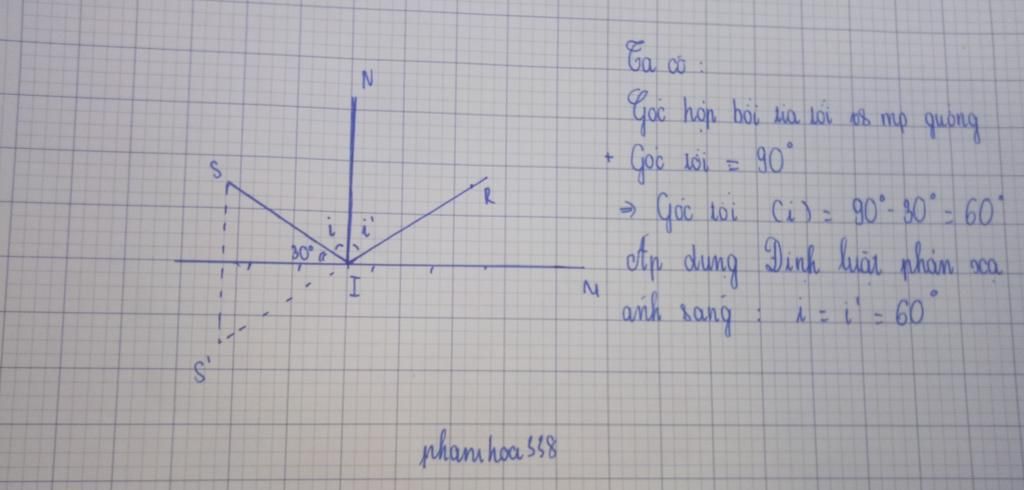 N
S
R
i i'
30°
I
M
S'
Ta có :
Góc hợp bởi tia tới và mp gương
+ Góc tới = 90°
⇒ Góc tới (i) = 90° - 30° = 60°
Áp dụng Định luật phản xạ
ánh sáng : i = i' = 60°
phamhoa338